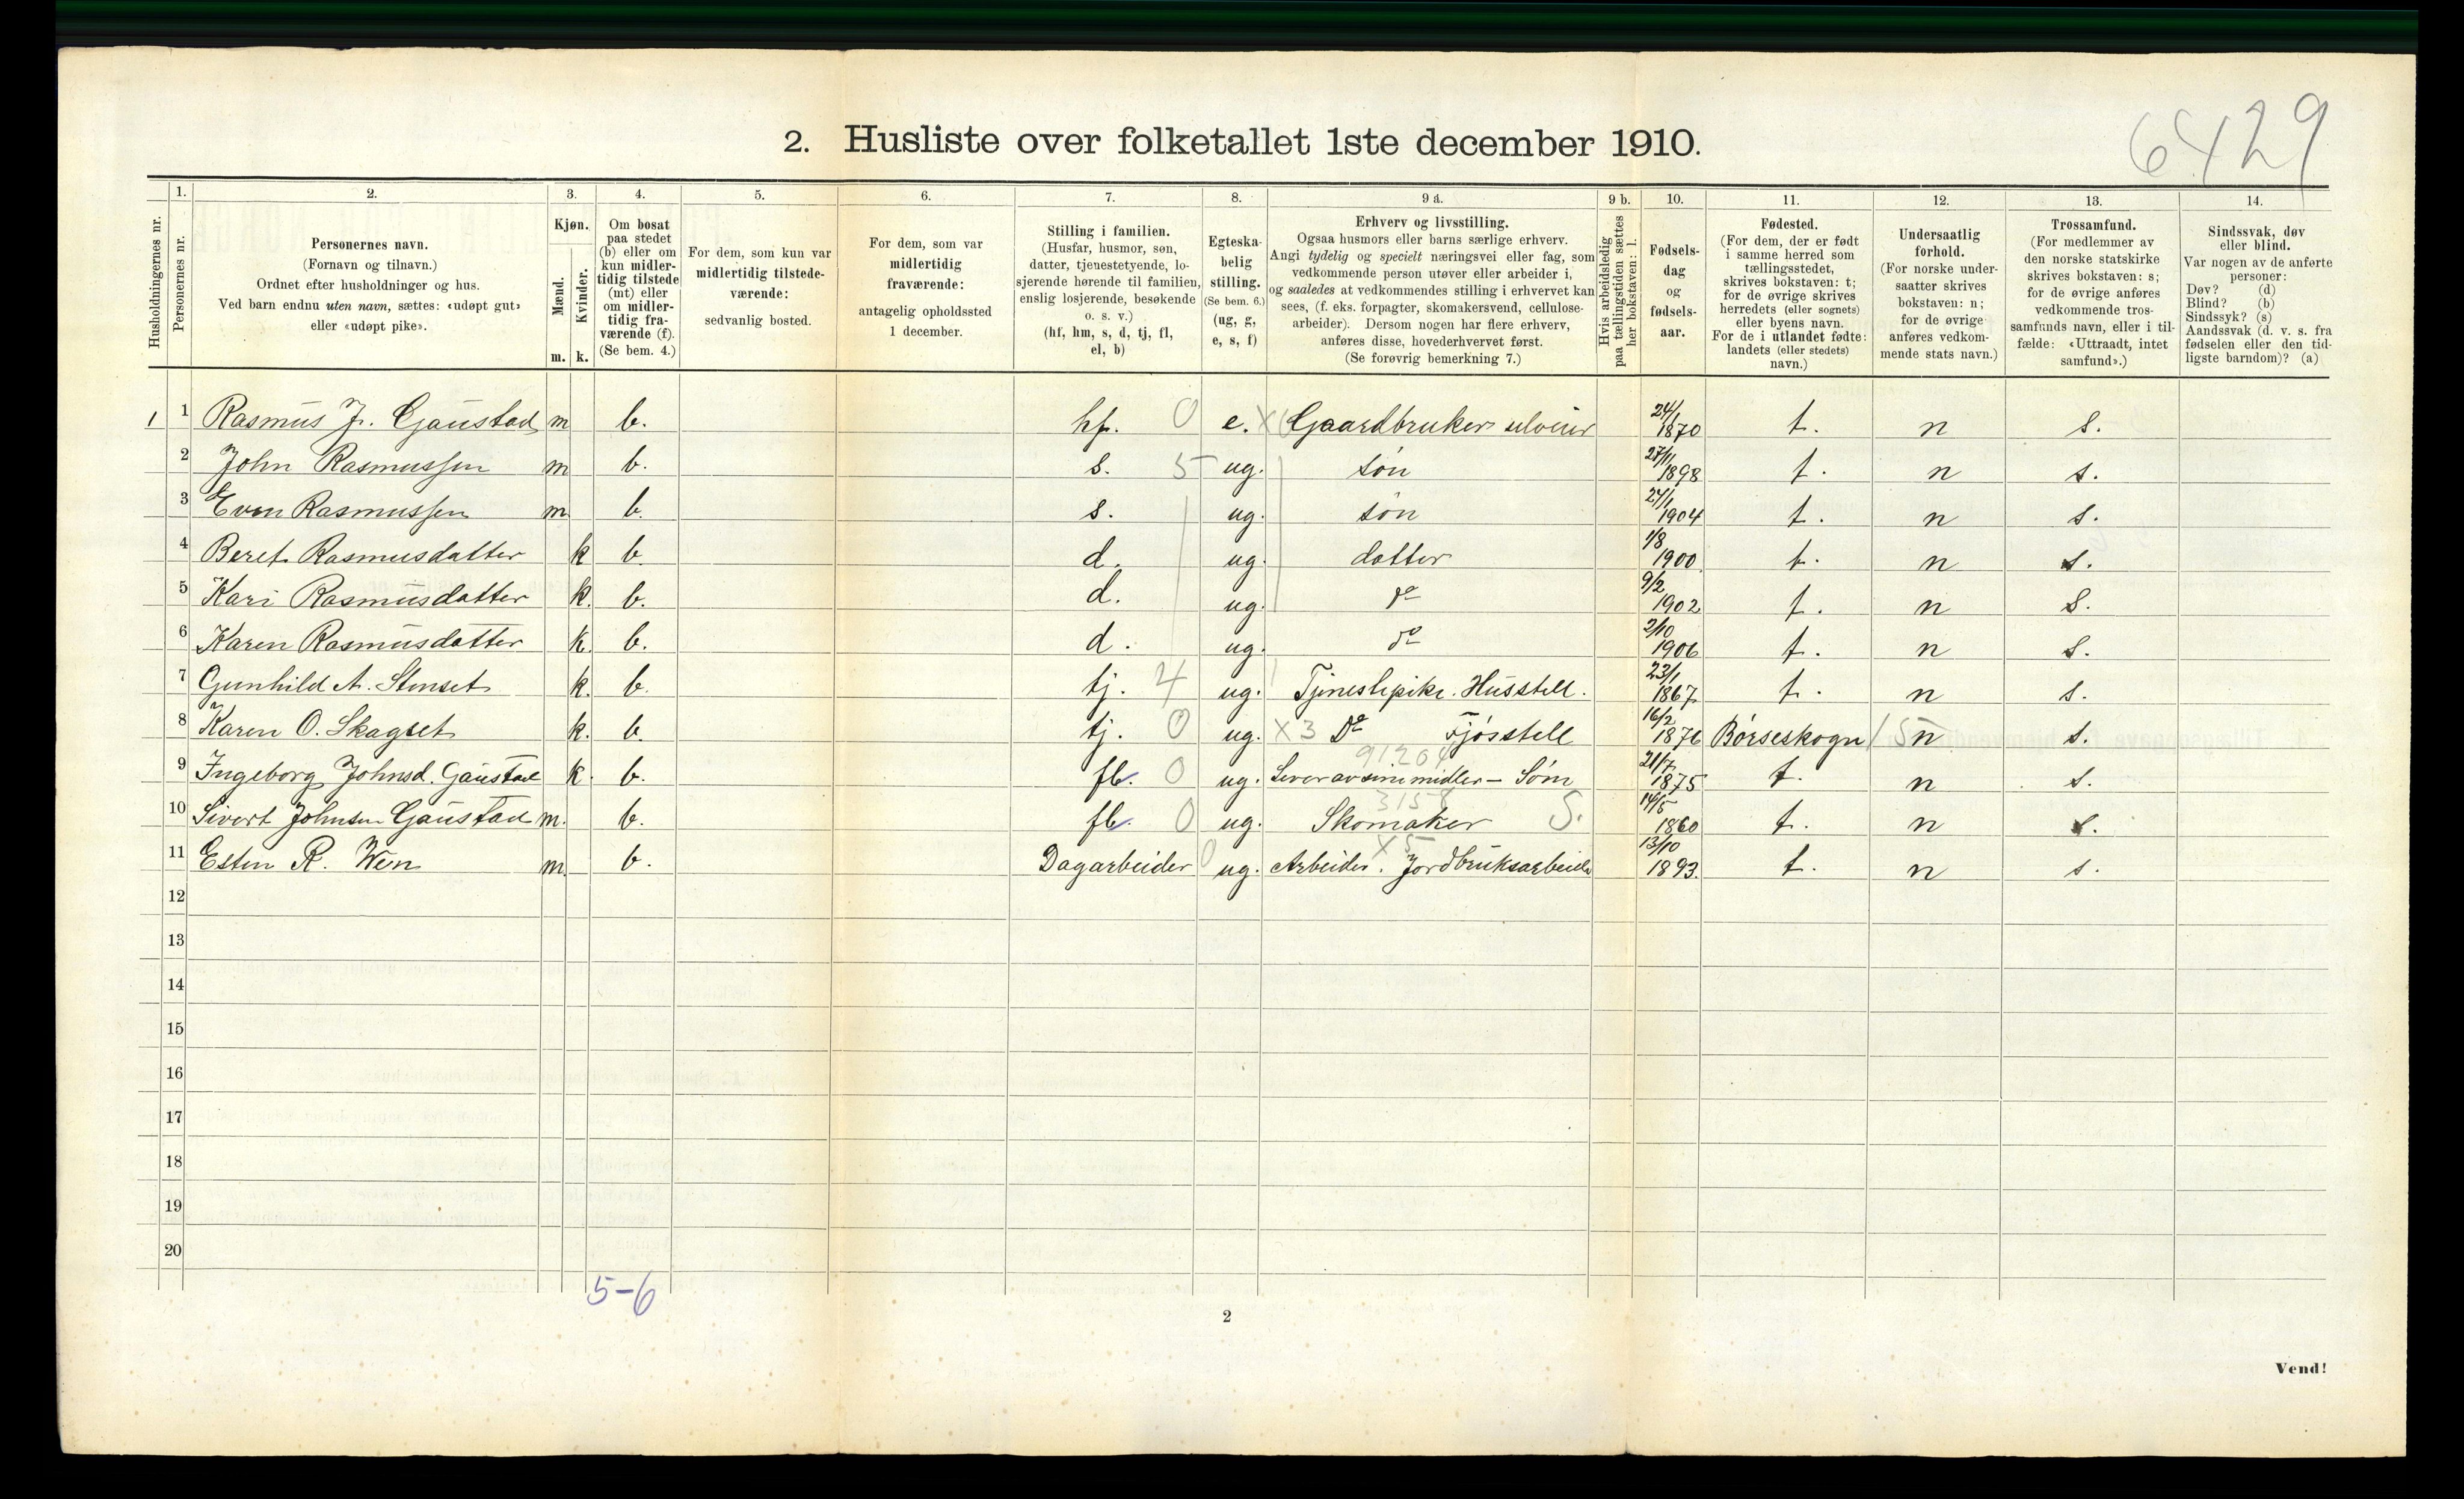 6429
2. Husliste over folketallet 1ste december 1910.
Husholdningernes nr.
1.
Personernes nr.
2.
Personernes navn.
(Fornavn og tilnavn.)
Ordnet efter husholdninger og hus.
Ved barn endnu uten navn, sættes: «udøpt gut»
eller «udøpt pike».
3.
Kjøn.
Mænd.
Kvinder.
m. k.
4.
Om bosat
paa stedet
(b) eller om
kun midler-
tidig tilstede
(mt) eller
om midler-
tidig fra-
værende (f).
(Se bem. 4.)
5.
For dem, som kun var
midlertidig tilstede-
værende:
sedvanlig bosted.
6.
For dem, som var
midlertidig
fraværende:
antagelig opholdssted
1 december.
7.
Stilling i familien.
(Husfar, husmor, søn,
datter, tjenestetyende, lo-
sjerende hørende til familien,
enslig losjerende, besøkende
o. s. v.)
(hf, hm, s, d, tj, fl,
el, b)
8.
Egteska-
belig
stilling.
(Se bem. 6.)
(ug, g,
e, s, f)
9 a.
Erhverv og livsstilling.
Ogsaa husmors eller barns særlige erhverv.
Angi tydelig og specielt næringsvei eller fag, som
vedkommende person utøver eller arbeider i,
og saaledes at vedkommendes stilling i erhvervet kan
sees, (f. eks. forpagter, skomakersvend, cellulose-
arbeider). Dersom nogen har flere erhverv,
anføres disse, hovederhvervet først.
(Se forøvrig bemerkning 7.)
9 b.
Hvis arbeidsledig
paa tællingstiden sættes
her bokstaven: l.
10.
Fødsels-
dag
og
fødsels-
aar.
11.
Fødested.
(For dem, der er født
i samme herred som
tællingsstedet,
skrives bokstaven: t;
for de øvrige skrives
herredets (eller sognets)
eller byens navn.
For de i utlandet fødte:
landets (eller stedets)
navn.)
12.
Undersaatlig
forhold.
(For norske under-
saatter skrives
bokstaven: n;
for de øvrige
anføres vedkom-
mende stats navn.)
13.
Trossamfund.
(For medlemmer av
den norske statskirke
skrives bokstaven: s;
for de øvrige anføres
vedkommende tros-
samfunds navn, eller i til-
fælde: «Uttraadt, intet
samfund».)
14.
Sindssvak, døv
eller blind.
Var nogen av de anførte
personer:
Døv? (d)
Blind? (b)
Sindssyk? (s)
Aandssvak (d. v. s. fra
fødselen eller den tid-
ligste barndom)? (a)
1 1 Rasmus J. Gaustad m b. hf. 0 e. Gaardbruker selveier 24/1 1870 t. n s.
2 John Rasmussen m b. s. 5 ug. søn 27/11 1898 t. n s.
3 Even Rasmussen m b. s. ug. søn 24/1 1904 t. n s.
4 Beret Rasmusdatter k b. d. ug. datter 1/8 1900 t. n s.
5 Kari Rasmusdatter k. b. d. ug. do 9/2 1902 t. n s.
6 Karen Rasmusdatter k. b. d. ug. do 2/10 1906 t. n s.
7 Gunhild A. Stenset k. b. tj. 4 ug. Tjenestepike. Husstell. 23/1 1867 t. n s.
8 Karen O. Skagset k. b. tj. 0 ug. X3 Do Fjøsstell 16/2 1876 Børseskogn n s.
91204
9 Ingeborg Johnsd. Gaustad k. b. fl. 0 ug. Lever av sine midler – Søm 21/7 1875 t. n s.
10 Sivert Johnsen Gaustad m. b. fl. 0 ug. Skomaker S. 14/5 1860 t. n s.
X5
11 Esten R. Wen m. b. Dagarbeider 0 ug. Arbeider. Jordbruksarbeide 13/10 1893. t. n s.
12
13
14
15
16
17
18
19
20
5-6
2
Vend!